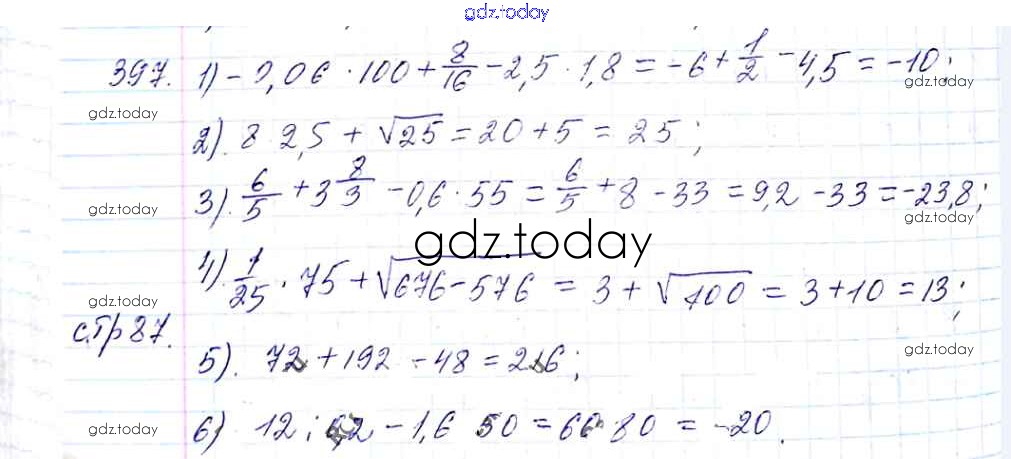 gdz.today
397. 1) -0,06 · 100 + 8/16 - 2,5 · 1,8 = -6 + 1/2 - 4,5 = -10;
gdz.today gdz.today
2). 8 2,5 + √25 = 20 + 5 = 25;
3). 6/5 + 3 8/3 - 0,6 · 55 = 6/5 + 8 - 33 = 9,2 - 33 = -23,8;
gdz.today gdz.today
gdz.today
4). 1/25 · 75 + √676-576 = 3 + √100 = 3 + 10 = 13;
gdz.today
стр 87.
gdz.today
5). 72 + 192 - 48 = 216;
6) 12 : 0,2 - 1,6 50 = 60 · 80 = -20.
gdz.today gdz.today